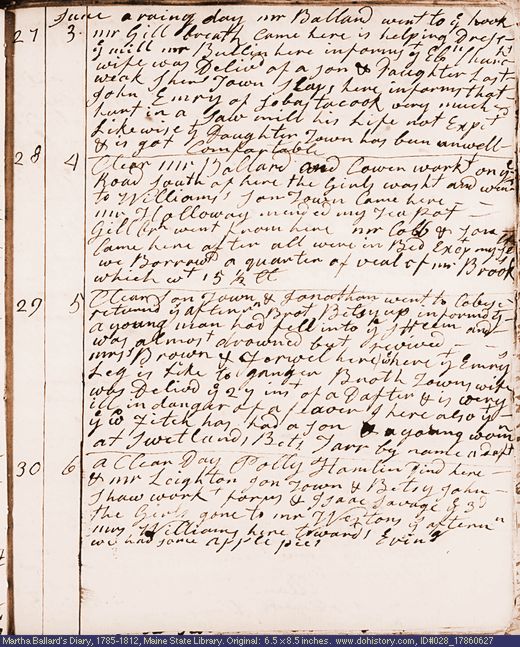 June a rainy day mr Ballard went to ye hook
27 3 mr Gill breath Came here is helping Dress
ye mill mr Bullin here informs yt
wife was Delivd of a son & Daughter Last
week Shere Town Slays here informs that
John Emry of Sebastacook very much
hurt in a Saw mill his Life not Expt
Like wise yt Daughter Town has been unwell
& is got Comfortable
28 4 Clear mr Ballard and Cowen workt on ye
Road South of here the Girls washt and went
to Williams Son Town Came here
mr Holloway mended my Tea Pot
Gill Br went from here mr Cob & Jona
Came here after all were in Bed Except my self
we Borrowd a quarter of veal of mr Brook
which wt 15 ½ lb
29 5 Clear Son Town & Jonathan went to
returnd ye aftern Brot Betsy up informd yt
a young man had fell into ye Steem and
was almost drowned but revived
mrs Brown & Forwel here where ye Emrys
Leg is Like to ganger Broth Towns wife
was Delivd ye 27 inst of a Datter & is very
ill in danger of a feaver Shere also yt
ye Fitch has had a son & a young woman
at Swetlands Bets Tarr by name a Datr
30 6 a Clear Day Polly Hamlin Dind here
& mr Leighton Son Town & Betsy John
Shaw workt for us & Isaac Savage ye 3d
the Girls gone to mr Westons ye aftern
mrs Williams here towards Evng
we had some apple pies
Martha Ballard's Diary, 1785-1812, Maine State Library. Original: 6.5 x 8.5 inches. www.dohistory.com, ID#028_17860627